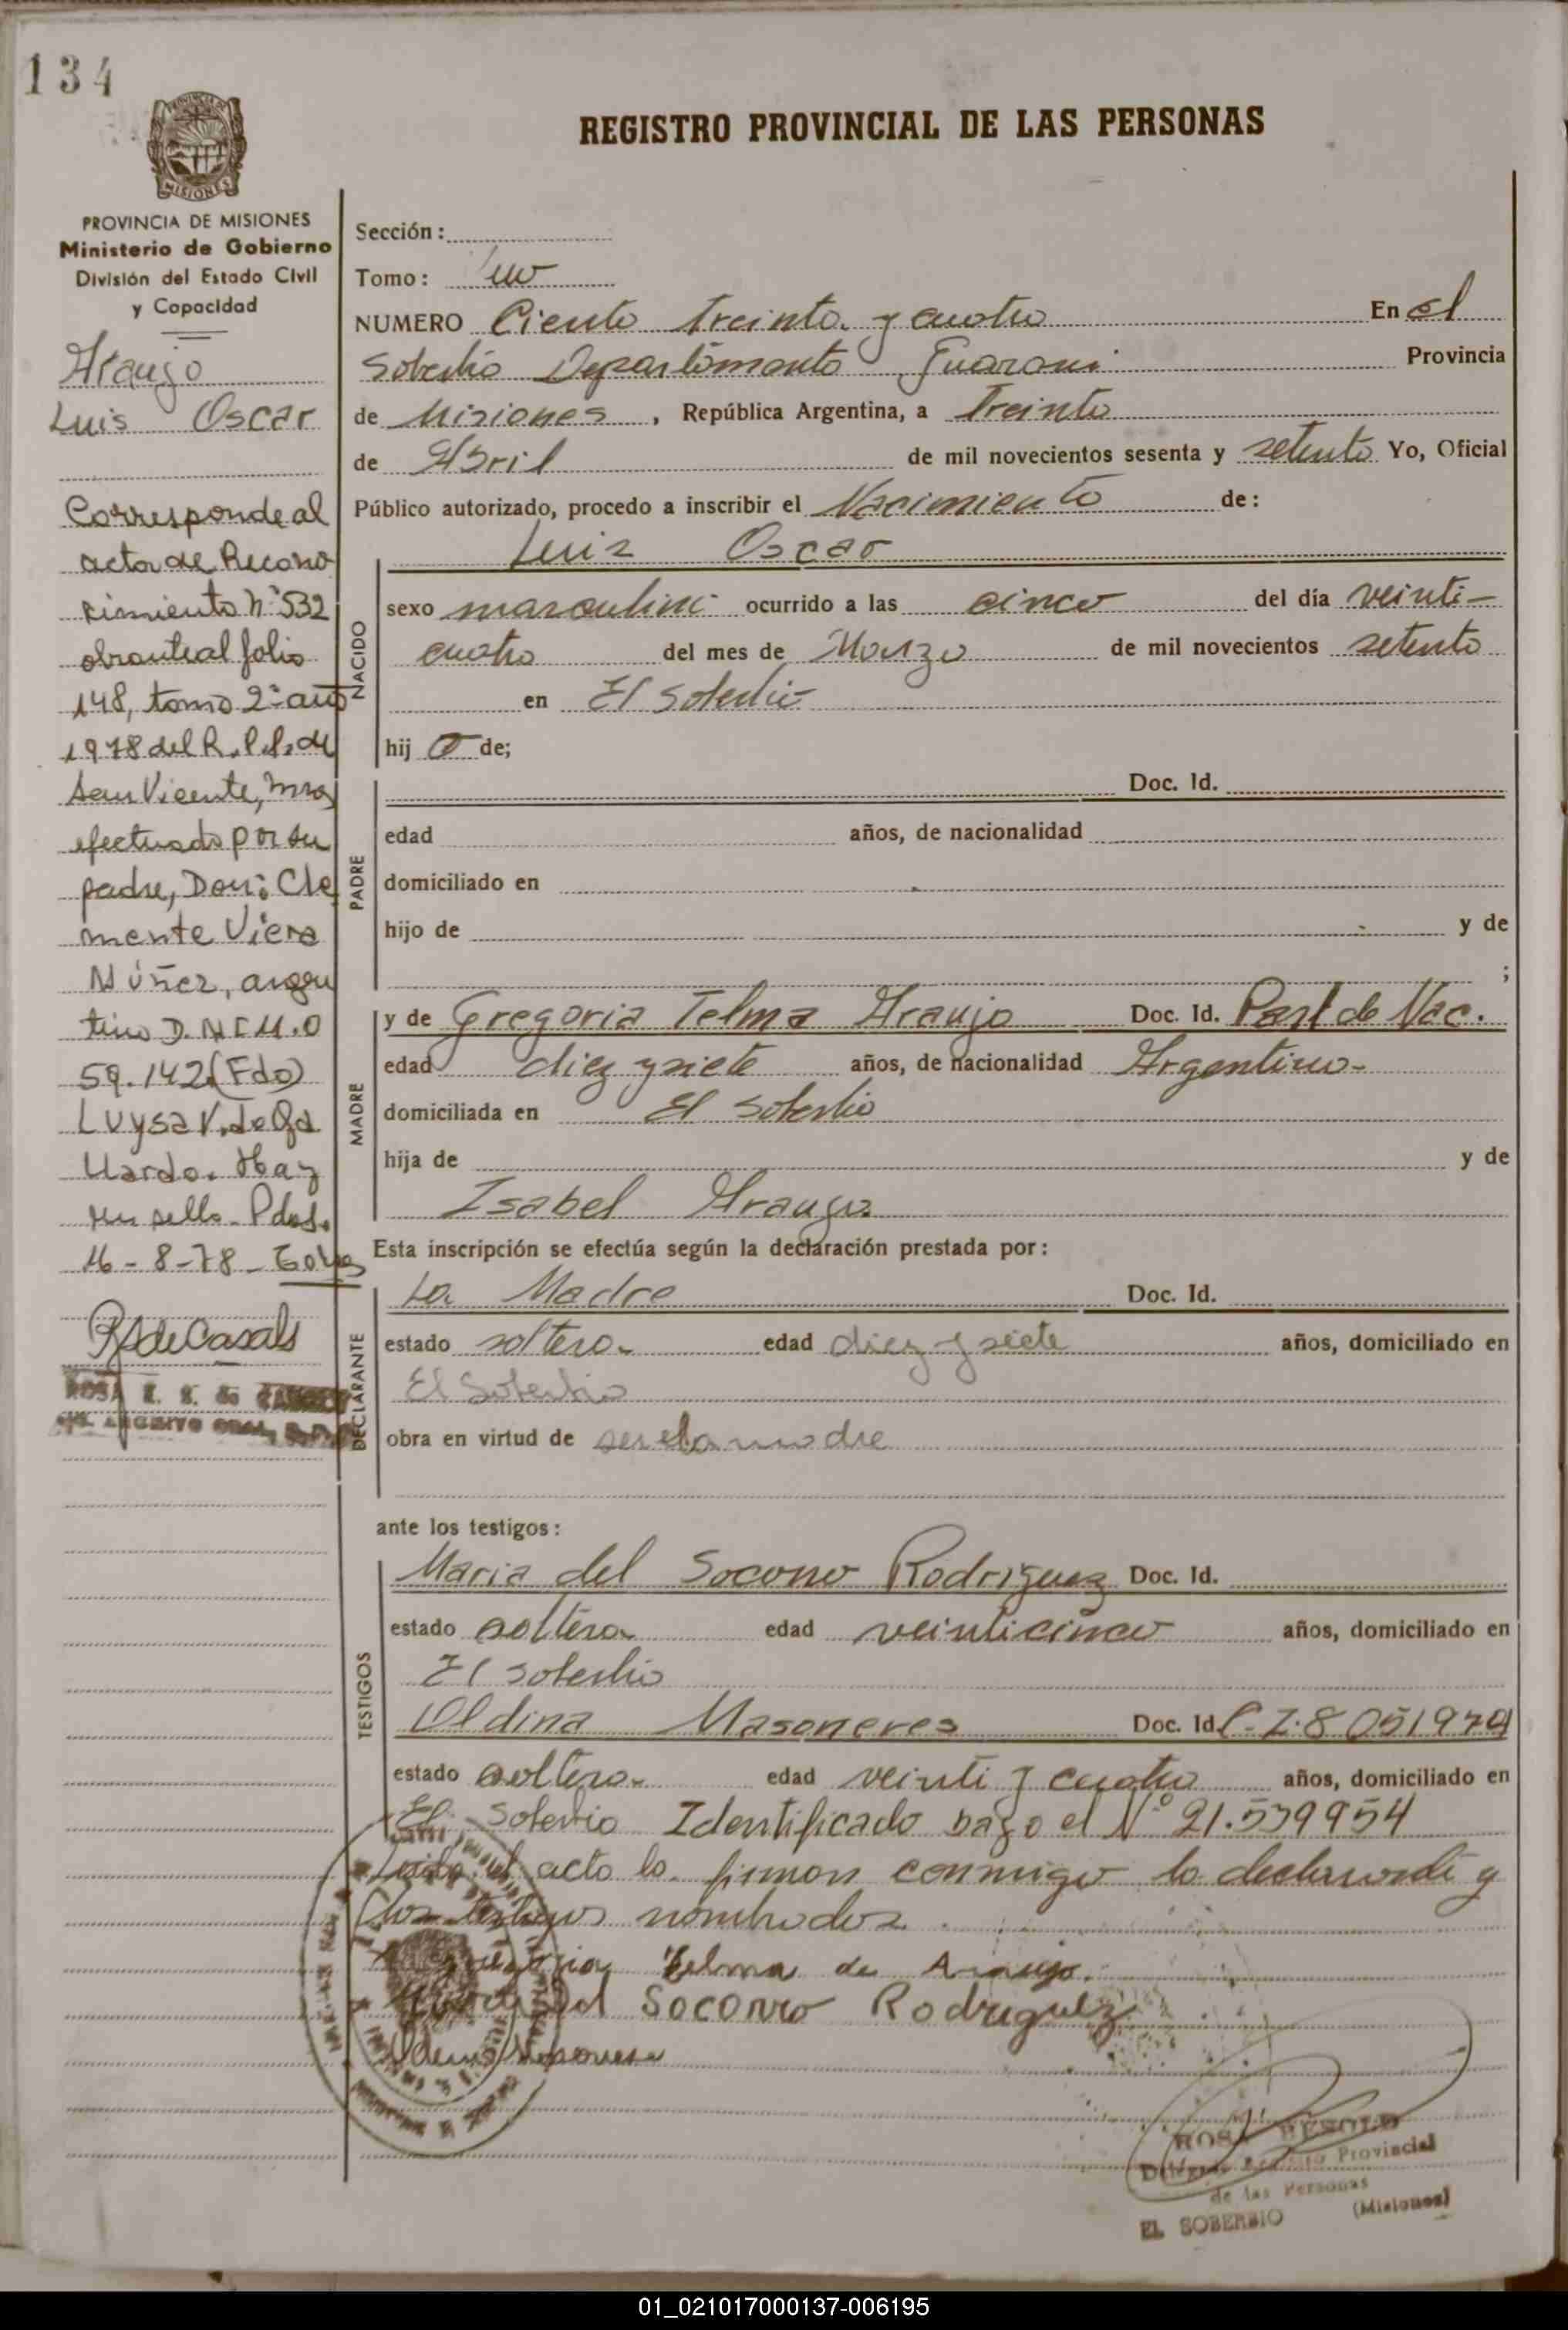 134
REGISTRO PROVINCIAL DE LAS PERSONAS
MISIONES
PROVINCIA DE MISIONES
Ministerio de Gobierno
División del Estado Civil
y Capacidad
Araujo
Luis Oscar
Corresponde al
acta de Recono
cimiento Nº 532
obrante al folio
148, tomo 2º año
1978 del R.P.P. de
San Vicente, Mnes
efectuado por su
padre, Don: Cle
mente Viera
Núñez, argen
tino D.N.I M.O
59.142 (Fdo)
Luysa V. de Ga
llardo. Hay
un sello. Pdas.
16-8-78-
RSdeCasals
ROSA de CASALS
Sección:
Tomo: Uno
NUMERO Ciento treinta y cuatro En El
Soberbio Departamento Guarani Provincia
de Misiones, República Argentina, a Treinta
de Abril de mil novecientos sesenta y setenta Yo, Oficial
Público autorizado, procedo a inscribir el Nacimiento de:
Luis Oscar
NACIDO
sexo masculino ocurrido a las cinco del día veinti-
cuatro del mes de Marzo de mil novecientos setenta
en El Soberbio
hij o de;
PADRE
Doc. Id.
edad años, de nacionalidad
domiciliado en
hijo de y de
;
MADRE
y de Gregoria Telma Araujo Doc. Id. Part de Nac.
edad diez y siete años, de nacionalidad Argentina-
domiciliada en El Soberbio
hija de y de
Isabel Araujo
Esta inscripción se efectúa según la declaración prestada por:
DECLARANTE
La Madre Doc. Id.
estado soltera edad diez y siete años, domiciliado en
El Soberbio
obra en virtud de ser la madre
ante los testigos:
TESTIGOS
Maria del Socorro Rodriguez Doc. Id.
estado soltera edad veinticinco años, domiciliado en
El Soberbio
Aldina Masoneres Doc. Id. C.I. 8051979
estado soltera edad veinti y cuatro años, domiciliado en
El Soberbio Identificado bajo el Nº 21.539954
Leida el acta la firman conmigo la declarante y
los testigos nombrados.
Gregoria Telma de Araujo.
Maria Del Socorro Rodriguez
Aldina Masoneres
ROSA BESOLD
Delegada Registro Provincial
de las Personas
EL SOBERBIO (Misiones)
01_021017000137-006195